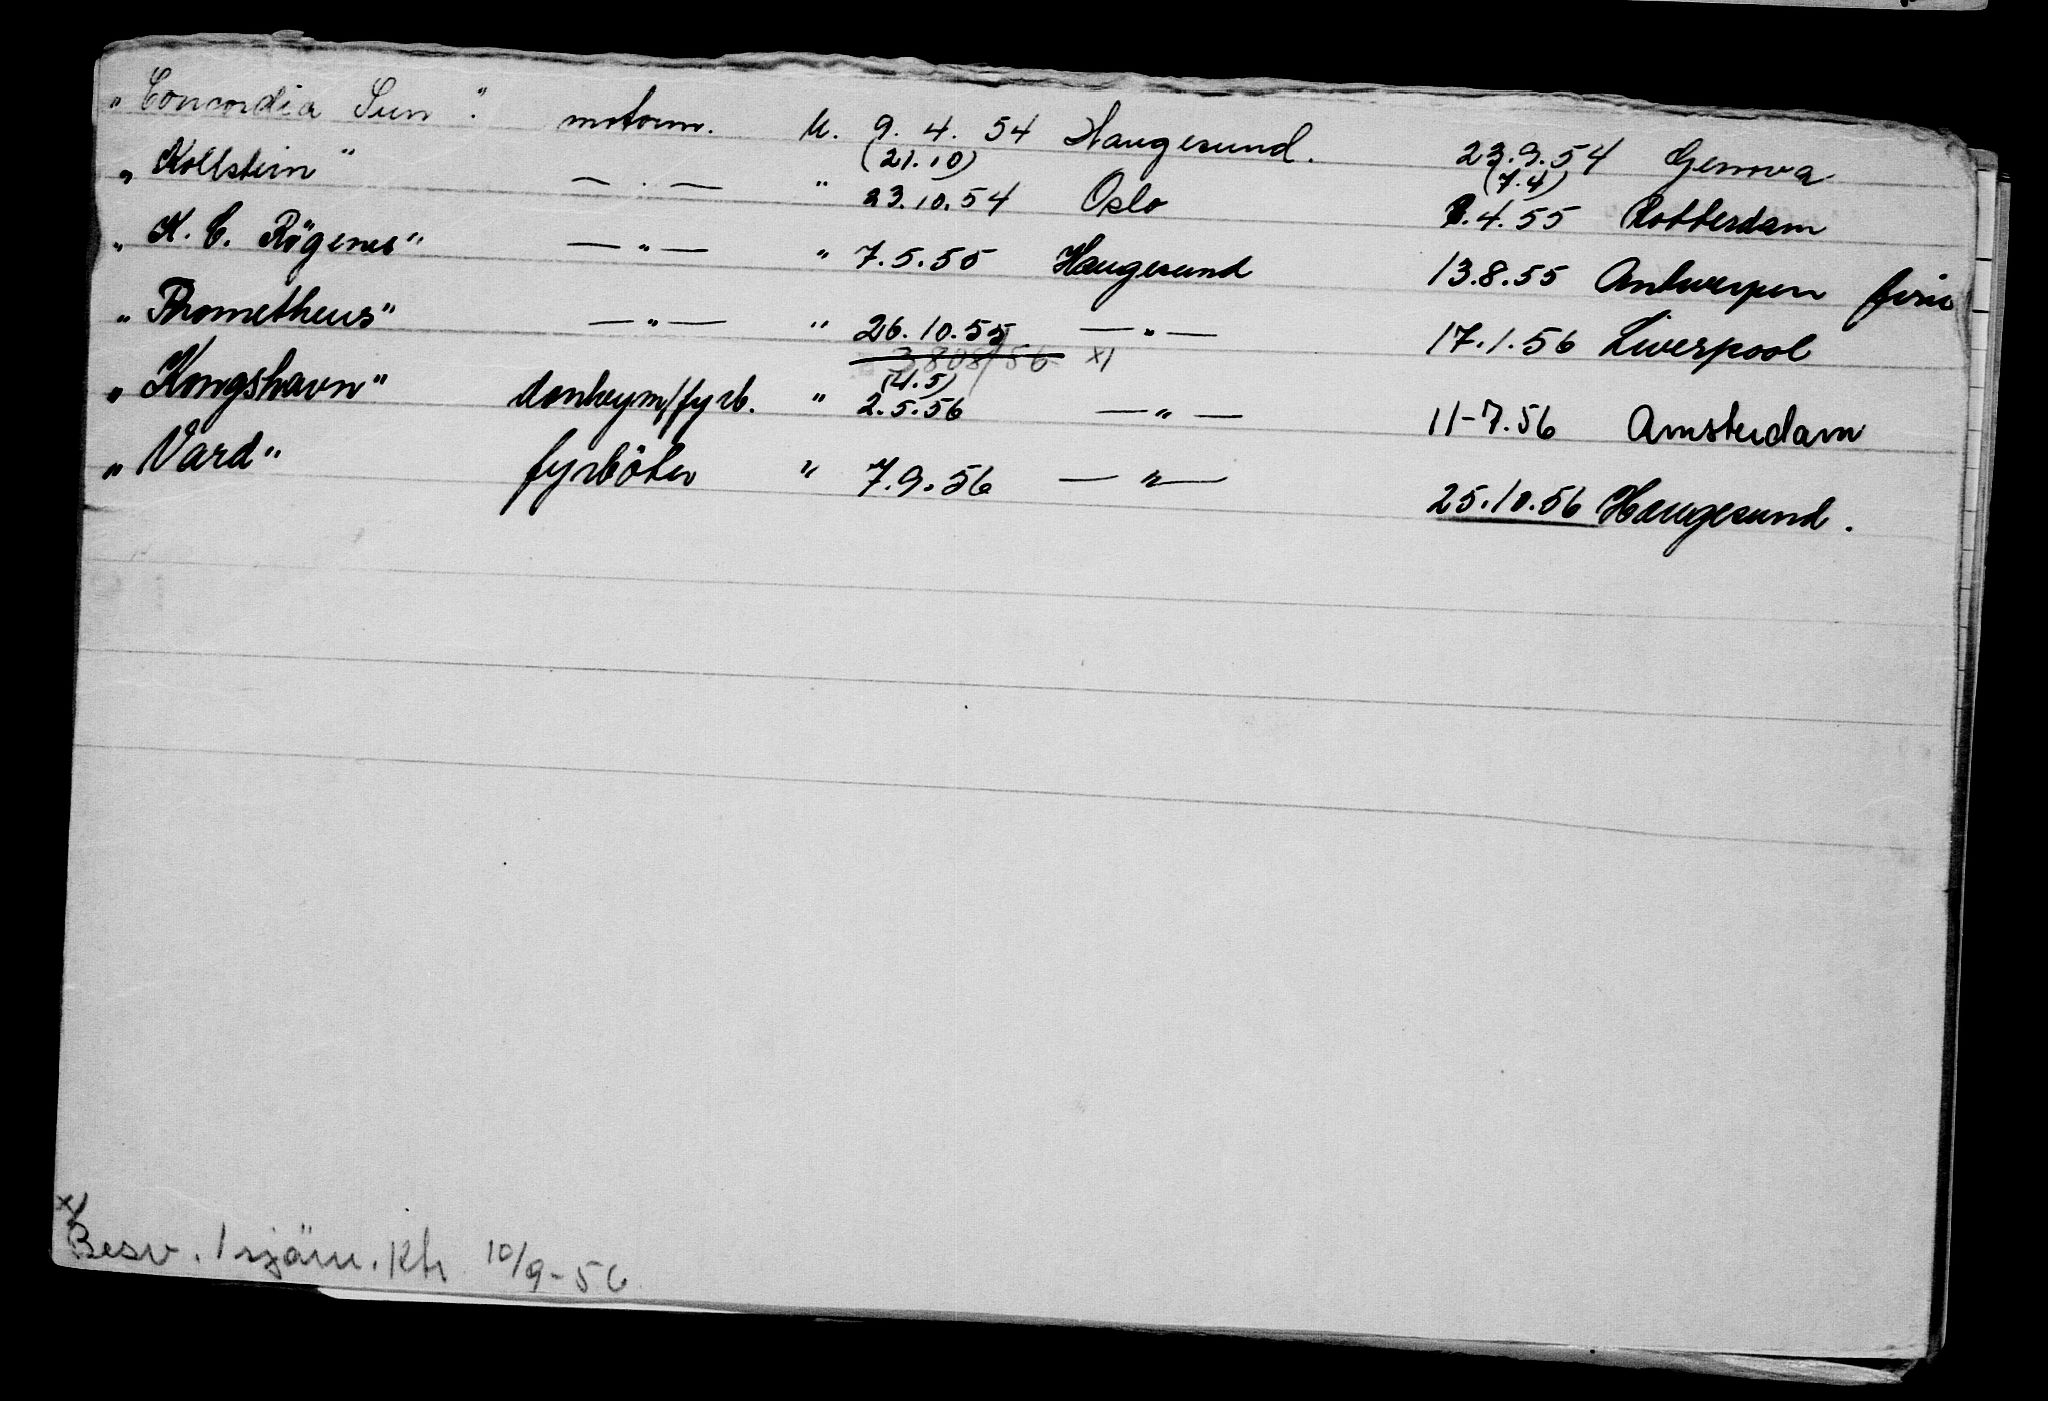 „Concordia Sun". motorm. U. 9. 4. 54 Haugesund. 23.9.54 Genova
(21.10) (7.4)
„Kollstein" — . — " 23.10.54 Oslo 8.4.55 Rotterdam
„K. C. Rögenes" — " — " 7.5.55 Haugesund 13.8.55 Antwerpen
„Prometheus" — " — " 26.10.55 — " — 17.1.56 Liverpool
3808/56 x)
(4.5)
„Kongshavn" donkeym/fyrb. " 2.5.56 — " — 11-7.56 Amsterdam
„Vard" fyrböter " 7.9.56 — " — 25.10.56 Haugesund.
x) Besv. 1 sjöm. Kh 10/9-56